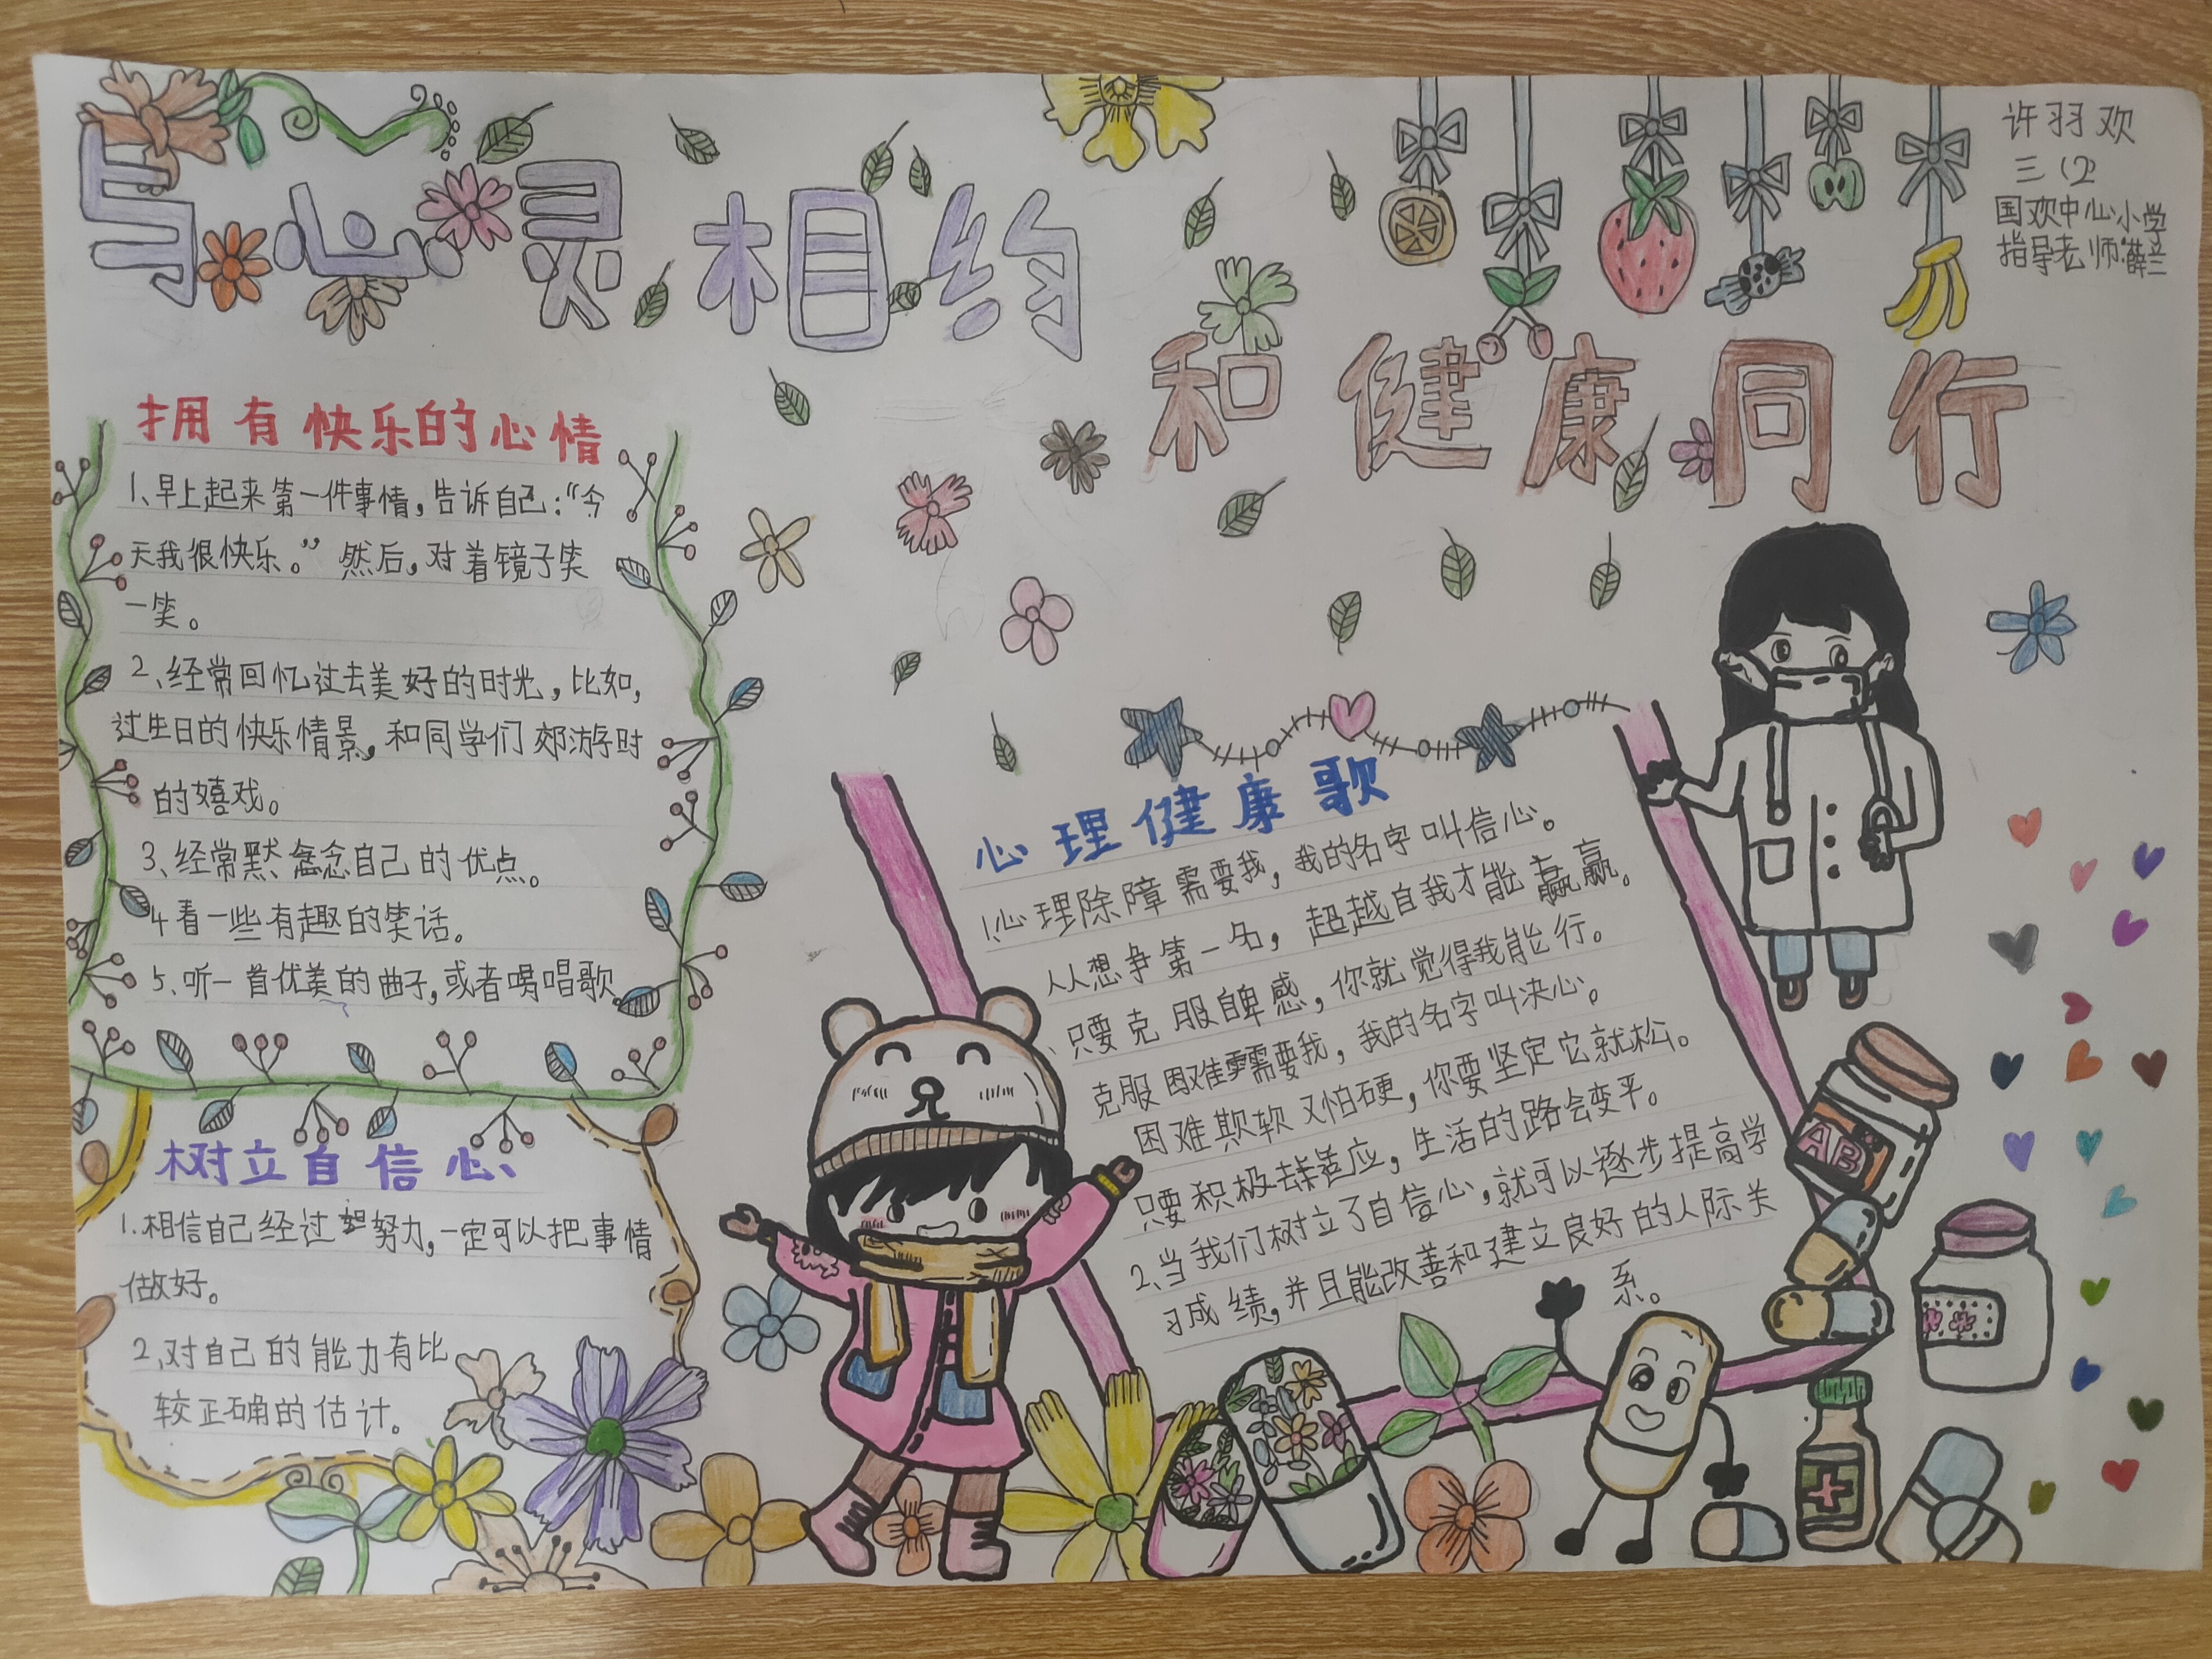 与心灵相约
和健康同行
许羽欢
三(2)
国欢中心小学
指导老师:薛兰
拥有快乐的心情
1、早上起来第一件事情，告诉自己：“今
天我很快乐。”然后，对着镜子笑
一笑。
2、经常回忆过去美好的时光，比如，
过生日的快乐情景，和同学们郊游时
的嬉戏。
3、经常默念自己的优点。
4看一些有趣的笑话。
5、听一首优美的曲子，或者唱唱歌
树立自信心
1.相信自己经过努力，一定可以把事情
做好。
2、对自己的能力有比
较正确的估计。
心理健康歌
1、心理除障需要我，我的名字叫信心。
人人想争第一名，超越自我才能赢。
只要克服自卑感，你就觉得我能行。
克服困难需要我，我的名字叫决心。
困难欺软又怕硬，你要坚定它就松。
只要积极去适应，生活的路会变平。
2、当我们树立了自信心，就可以逐步提高学
习成绩，并且能改善和建立良好的人际关
系。
AB